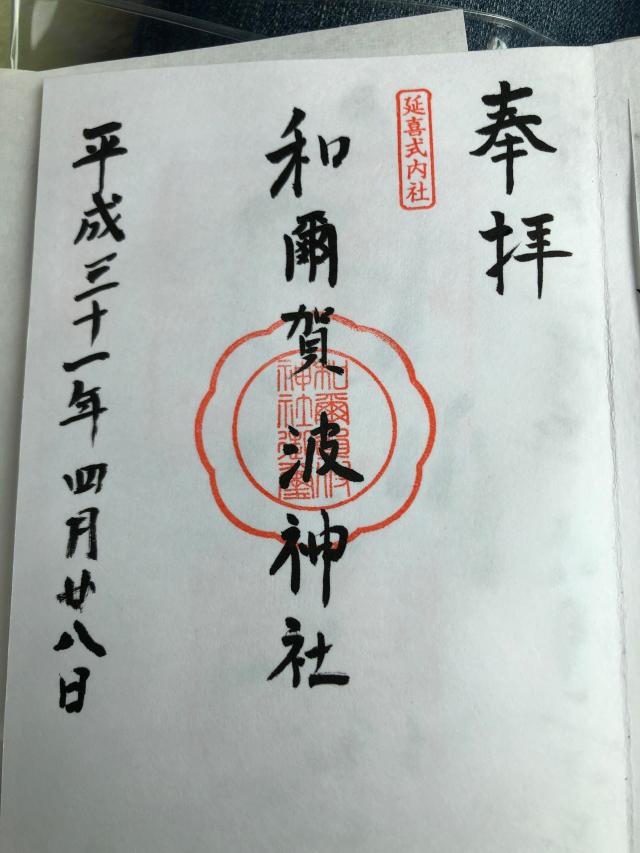 奉拝
延喜式内社
和爾賀波神社
和爾賀波
神社御璽
平成三十一年四月廿八日